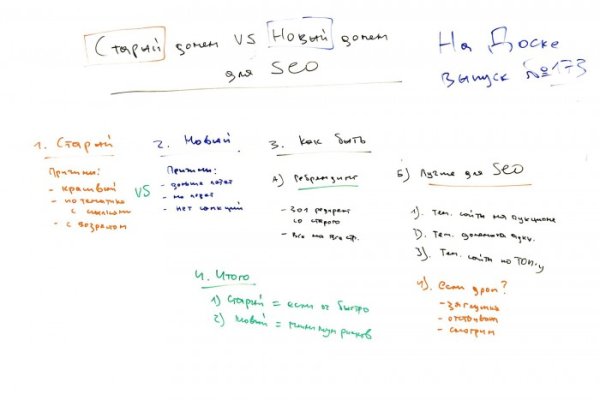 Старый домен VS Новый домен
для SEO
На Доске
выпуск №173
1. Старый
Причины:
- красивый
- по тематике
с ссылками
- с возрастом
VS
2. Новый
Причины:
- дольше
- не
- нет санкций
3. Как быть
А) Ребрендинг
- 301 редирект
со старого
- Все на все стр.
Б) Лучше для SEO
1). Тем. сайты на аукционе
2). Тем. домена аукц.
3). Тем. сайты по ТОПу
4). Если дроп?
- заглушка
- отстаивать
- смотрим
4. Итого
1) Старый = если ок быстро
2) Новый = минимум рисков